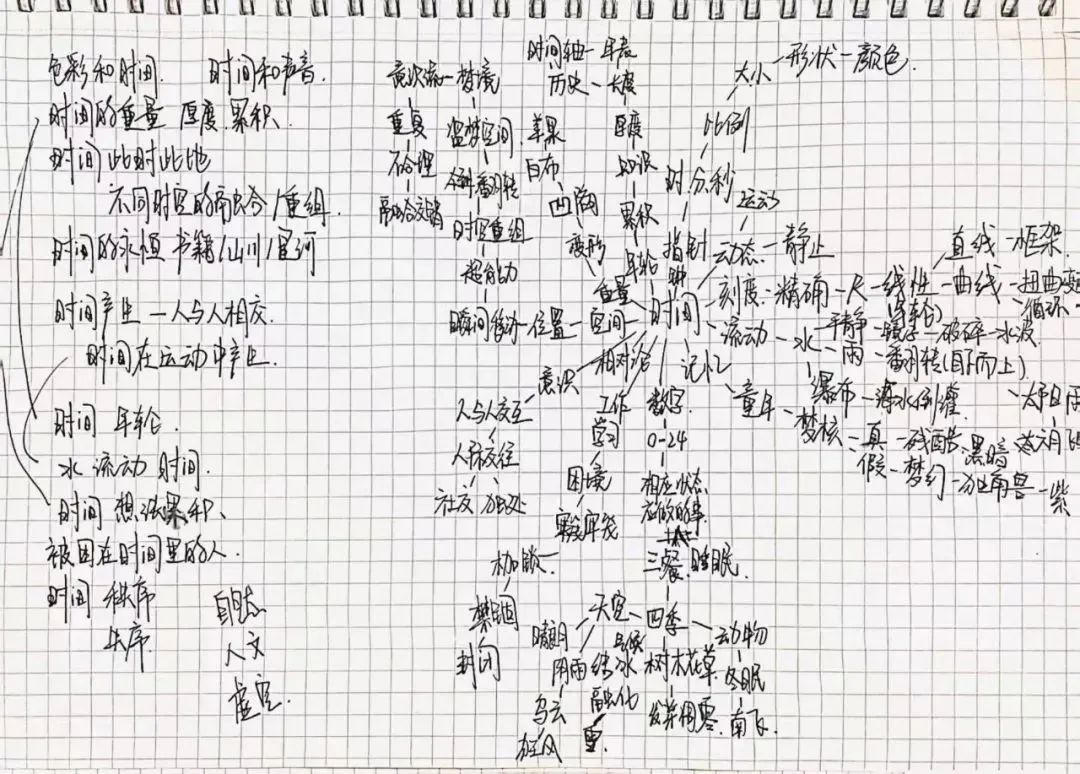 色彩和时间. 时间和声音
时间的重量 厚度 累积
时间 此时此地
不同时空的融合/重组.
时间的永恒 书籍/山川/星河
时间产生 — 人与人相交.
时间在运动中产生.
时间 年轮.
水 流动 时间.
时间 想法累积、
被困在时间里的人.
时间 秩序
失序.
自然
人文
虚空.
意识流 — 梦境
重复
不合理
融合交错
盗梦空间
翻转
时空重组
超能力
瞬间移动 — 位置 — 空间 — 时间
时间轴 — 年表
历史 — 长度
厚度
知识
累积
年轮
苹果
白布
凹陷
变形
重量
大小 — 形状 — 颜色.
比例
时分秒
指针
钟
运动
动态 — 静止
刻度 — 精确 — 尺 — 线性 — 曲线 — 扭曲变
直线 — 框架
循环
(年轮)
流动 — 水 — 平静 — 镜子 — 破碎 — 水波
雨 — 翻转(自下而上)
瀑布 — 滴水倒灌
记忆
童年 — 梦核 — 真 — 残酷 黑暗
假 — 梦幻 — 独角兽 — 紫
相对论
意识
人与人交互
人际交往
社交 独处
工作
学习
困境
枷锁
禁锢
封闭
数字
0-24
相应状态
应做的事
三餐. 睡眠.
天空 — 四季 — 动物
晴朗
阴雨
乌云
狂风
气候
结冰
融化
雪.
树木花草
发芽凋零.
冬眠
南飞.